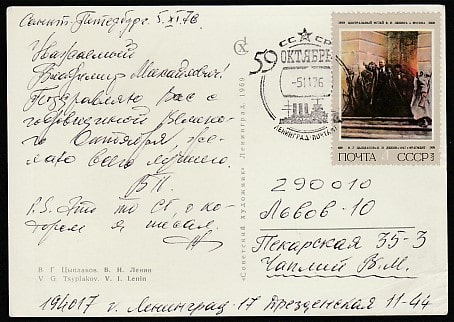 Санкт-Петербург. 5.XI.76
Уважаемый
Владимир Михайлович!
Поздравляю Вас с
годовщиной Велико-
го Октября, же-
лаю всего лучшего.
ВП.
P.S. Это то СГ, о ко-
тором я писал.
В. Г. Цыплаков. В. И. Ленин
V. G. Tsyplakov. V. I. Lenin
«Советский художник» Ленинград. 1969
СССР
59 ОКТЯБРЬ
-5 11 76
ЛЕНИНГРАД-ПОЧТАМТ
ЦЕНТРАЛЬНЫЙ МУЗЕЙ В. И. ЛЕНИНА МОСКВА
В. Г. ЦЫПЛАКОВ В. И. ЛЕНИН 1947 ФРАГМЕНТ
ПОЧТА СССР
290010
Львов-10
Пекарская 35-3
Чаплий В.М.
194017 г. Ленинград-17 Дрезденская 11-44